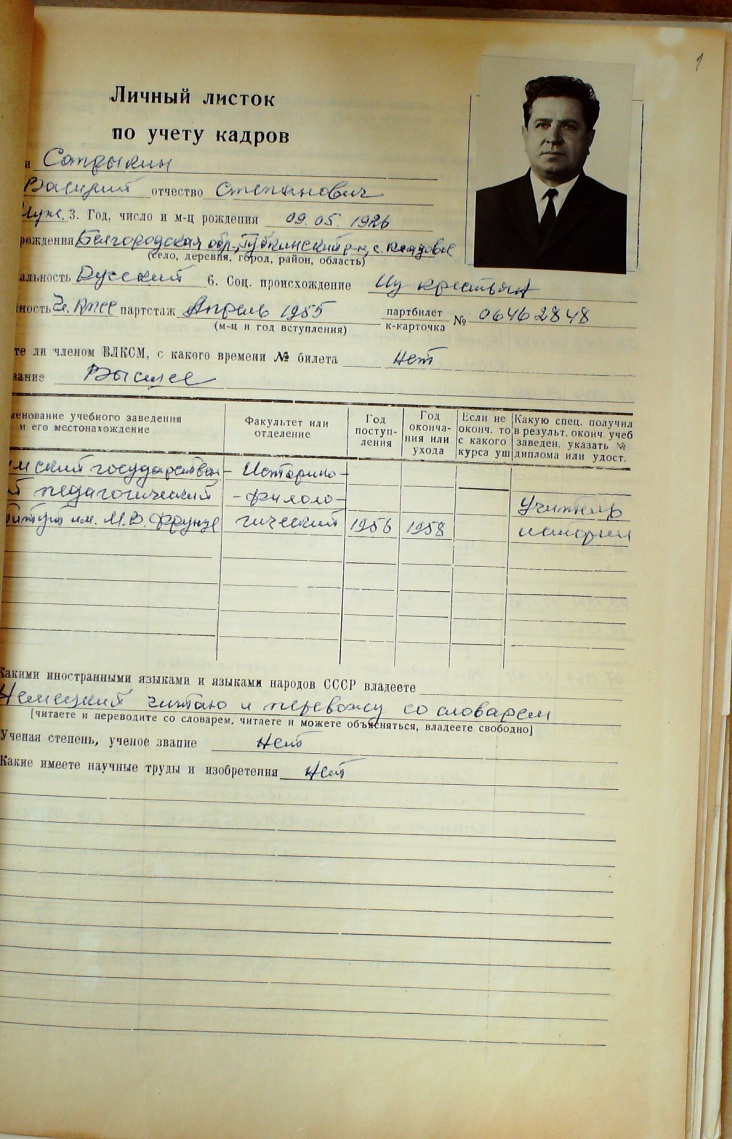 1
Личный листок
по учету кадров
Василий отчество Степанович
3. Год, число и м-ц рождения 09.05.1926
рождения Белгородская обл, Губкинский р-н, с.
(село, деревня, город, район, область)
альность Русский 6. Соц. происхождение Из крестьян
ность Чл. КПСС партстаж Апрель 1955 партбилет
(м-ц и год вступления) к-карточка № 06462848
те ли членом ВЛКСМ, с какого времени № билета нет
вание Высшее
менование учебного заведения и его местонахождение Факультет или отделение Год поступ-ления Год оконча-ния или ухода Если не оконч. то с какого курса уш Какую спец. получил в результ. оконч. учеб заведен. указать № диплома или удост.
мский государствен- Историко-
й педагогический -филоло- Учитель
титут им. М.В. Фрунзе гический 1956 1958 истории
Какими иностранными языками и языками народов СССР владеете
Немецкий читаю и перевожу со словарем
[читаете и переводите со словарем, читаете и можете объясняться, владеете свободно]
Ученая степень, ученое звание нет
Какие имеете научные труды и изобретения нет